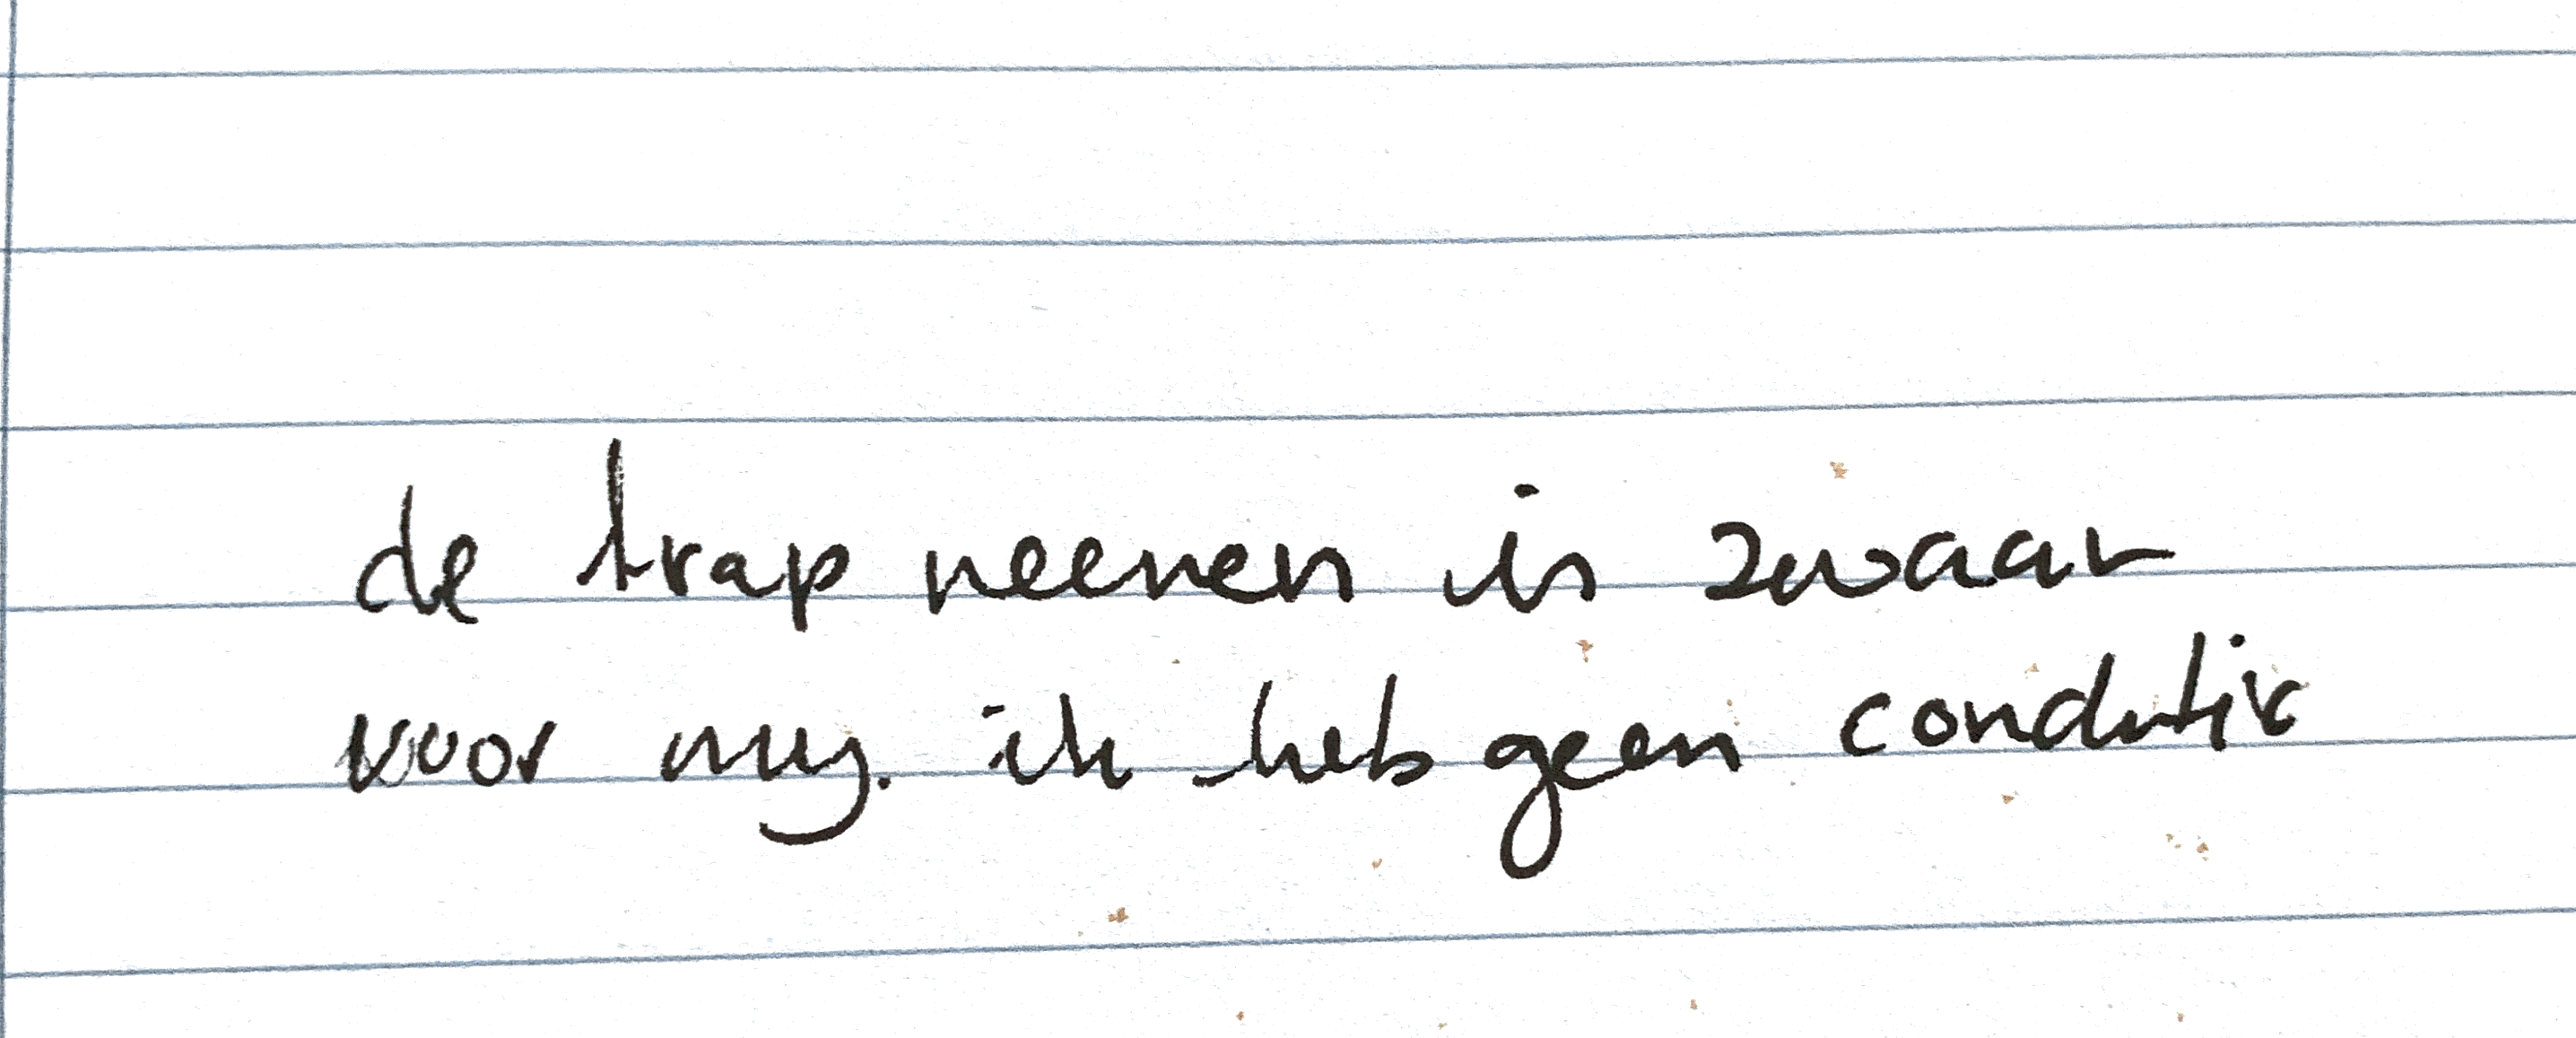 de trap neemen is zwaar
voor mij. ik heb geen conditie